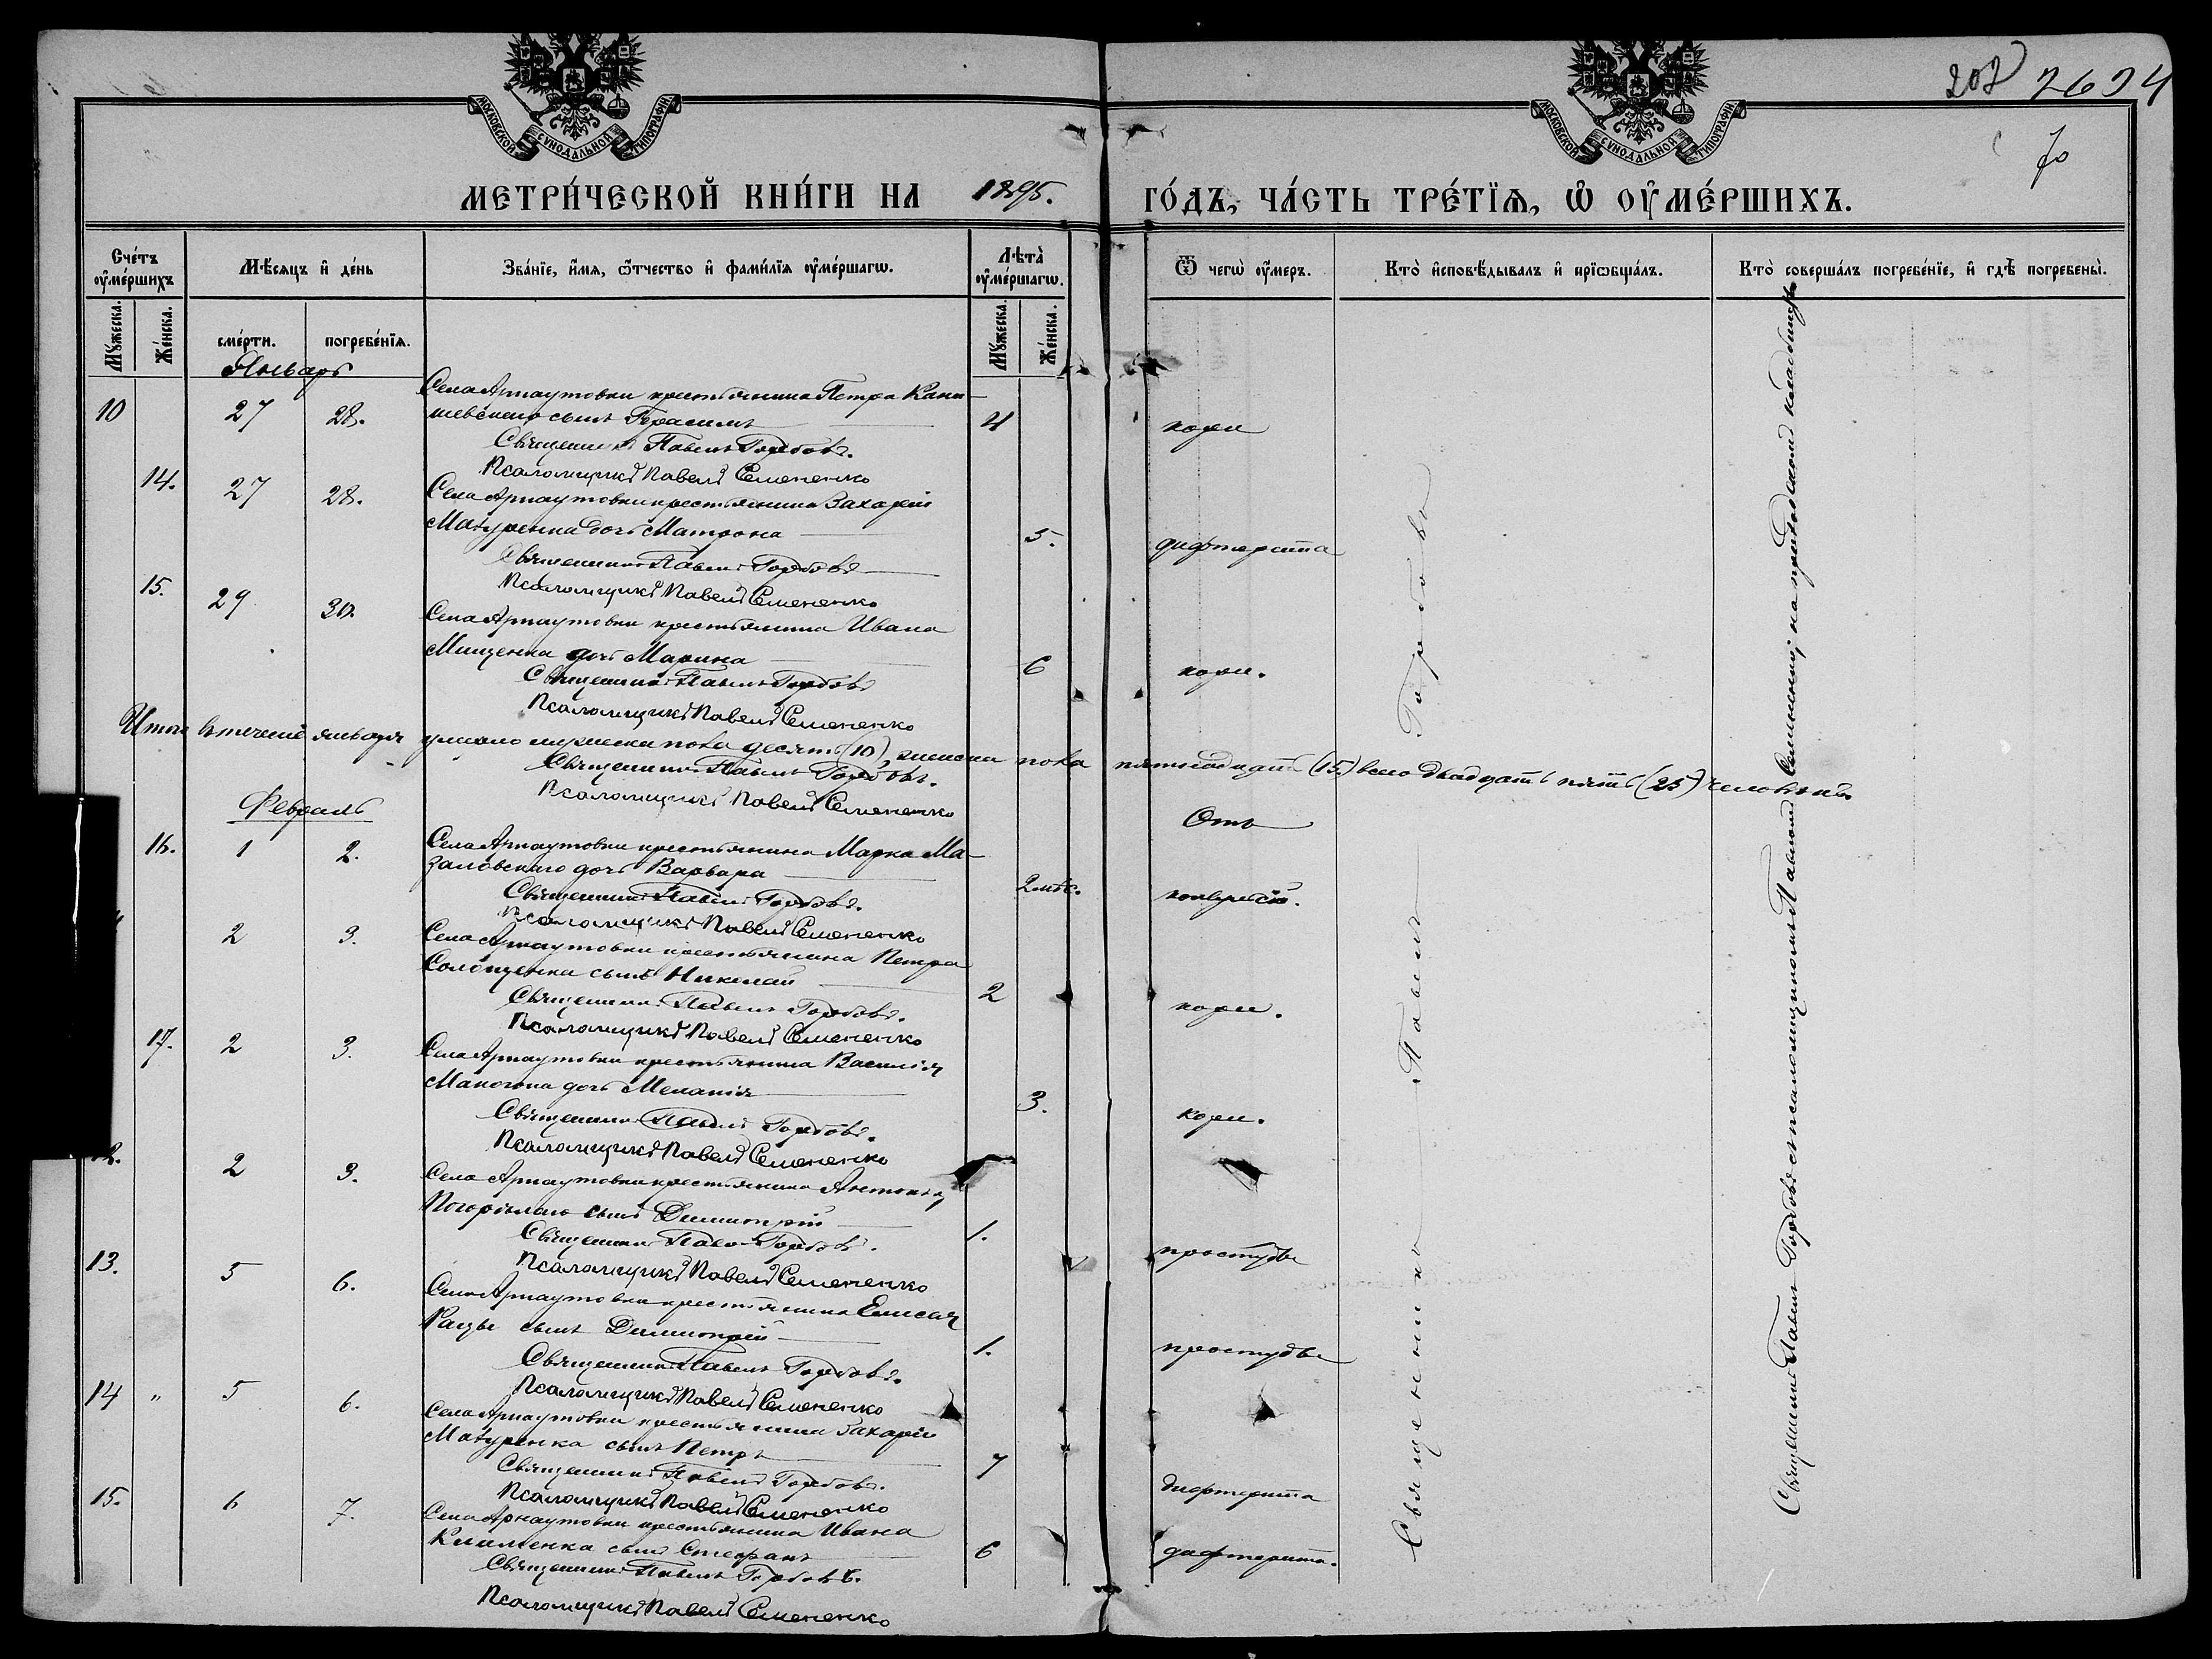 202 2634
70
МОСКОВСКОЙ СѴНОДАЛЬНОЙ ТИПОГРАФІИ
МОСКОВСКОЙ СѴНОДАЛЬНОЙ ТИПОГРАФІИ
МЕТРИ́ЧЕСКОЙ КНИ́ГИ НА 1895. ГО́ДЪ, ЧА́СТЬ ТРЕ́ТІѦ, Ѡ҆ ОУ҆МЕ́РШИХЪ.
Сче́тъ оу҆ме́ршихъ
Мѣ́сяцъ и҆ де́нь
Зва́нїе, и҆́мя, ѻ҆́тчество и҆ фами́лїя оу҆ме́ршагѡ.
Лѣ́та оу҆ме́ршагѡ.
Ѿ чегѡ̀ оу҆́меръ.
Кто̀ и҆сповѣ́дывалъ и҆ прїѡбща́лъ.
Кто̀ соверша́лъ погребе́нїе, и҆ гдѣ̀ погребены̀.
Мꙋ́жеска. Же́нска. сме́рти. погребе́нїя. Мꙋ́жеска. Же́нска.
Январь
10 27 28. Села Арнаутовки крестьянина Петра Кани-
шевскаго сынъ Герасимъ 4 кори
Священникъ Павелъ Горбовъ.
Псаломщикъ Павелъ Семененко
14. 27 28. Села Арнаутовки крестьянина Захарія
Мазуренка дочь Матрона 5. дифтерита
Священникъ Павелъ Горбовъ
Псаломщикъ Павелъ Семененко
15. 29 30. Села Арнаутовки крестьянина Ивана
Мищенка дочь Марина 6 кори.
Священникъ Павелъ Горбовъ
Псаломщикъ Павелъ Семененко
Итого въ теченіе января умерло мужеска пола десять (10), женска пола пятнадцать (15) всего двадцать пять (25) человѣкъ.
Священникъ Павелъ Горбовъ.
Псаломщикъ Павелъ Семененко
Февраль Отъ
16. 1 2. Села Арнаутовки крестьянина Марка Ма-
заловскаго дочь Варвара 2 мѣс.
Священникъ Павелъ Горбовъ.
Псаломщикъ Павелъ Семененко
2 3. Села Арнаутовки крестьянина Петра
Солощенка сынъ Николай 2 кори.
Священникъ Павелъ Горбовъ.
Псаломщикъ Павелъ Семененко
17. 2 3. Села Арнаутовки крестьянина Василія
Маногона дочь Меланія 3. кори.
Священникъ Павелъ Горбовъ.
Псаломщикъ Павелъ Семененко
12. 2 3. Села Арнаутовки крестьянина Антонія
Погорѣлаго сынъ Димитрій 1. простуды
Священникъ Павелъ Горбовъ.
Псаломщикъ Павелъ Семененко
13. 5 6. Села Арнаутовки крестьянина Елисея
Рацы сынъ Димитрій 1. простуды
Священникъ Павелъ Горбовъ.
Псаломщикъ Павелъ Семененко
14 " 5 6. Села Арнаутовки крестьянина Захарія
Мазуренка сынъ Петръ 7 дифтерита
Священникъ Павелъ Горбовъ.
Псаломщикъ Павелъ Семененко
15. 6 7. Села Арнаутовки крестьянина Ивана
Клименка сынъ Стефанъ 6 дифтерита.
Священникъ Павелъ Горбовъ.
Псаломщикъ Павелъ Семененко
Священникъ Павелъ Горбовъ
Священникъ Павелъ Горбовъ съ псаломщикомъ Павломъ Семененко, на приходскомъ кладбищѣ